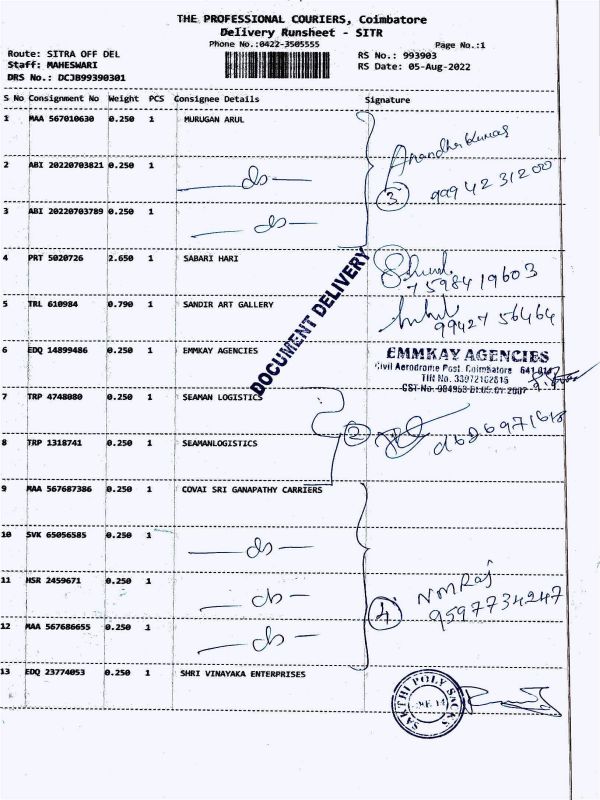 THE PROFESSIONAL COURIERS, Coimbatore
Delivery Runsheet - SITR
Phone No.:0422-3505555
Page No.:1
Route: SITRA OFF DEL
RS No.: 993903
Staff: MAHESWARI
RS Date: 05-Aug-2022
DRS No.: DCJB99390301
S No Consignment No Weight PCS Consignee Details Signature
1 MAA 567010630 0.250 1 MURUGAN ARUL
Anandha Kumar
2 ABI 20220703821 0.250 1 — do —
3 9994231200
3 ABI 20220703789 0.250 1 — do —
4 PRT 5020726 2.650 1 SABARI HARI
7598419603
5 TRL 610984 0.790 1 SANDIR ART GALLERY
99427 56464
DOCUMENT DELIVERY
6 EDQ 14899486 0.250 1 EMMKAY AGENCIES
EMMKAY AGENCIES
Civil Aerodrome Post. Coimbatore
TIN No. 33972102815
7 TRP 4748080 0.250 1 SEAMAN LOGISTICS
2
8 TRP 1318741 0.250 1 SEAMANLOGISTICS
9 MAA 567687386 0.250 1 COVAI SRI GANAPATHY CARRIERS
10 SVK 65056585 0.250 1 — do —
11 HSR 2459671 0.250 1 — do —
4 NMRaj
9597734247
12 MAA 567686655 0.250 1 — do —
13 EDQ 23774053 0.250 1 SHRI VINAYAKA ENTERPRISES
SAKTHI POLY SACKS